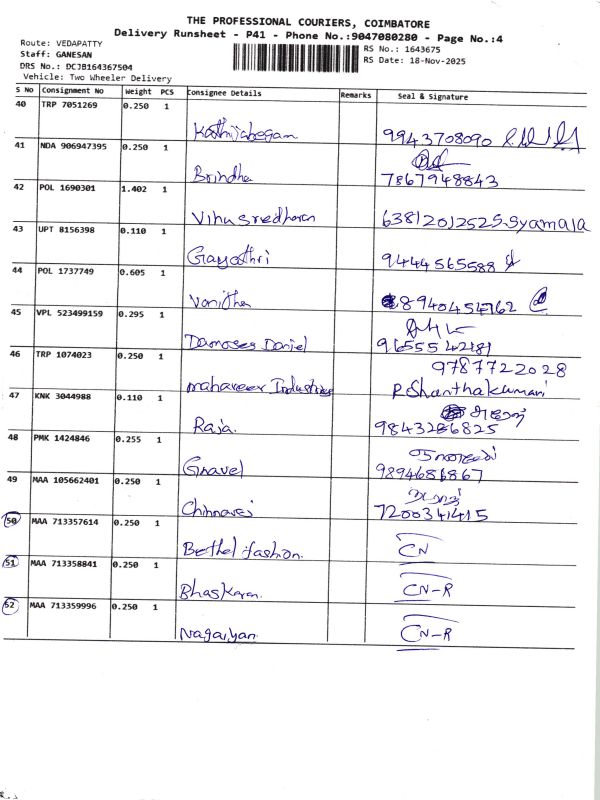 THE PROFESSIONAL COURIERS, COIMBATORE
Delivery Runsheet - P41 - Phone No.:9047080280 - Page No.:4
Route: VEDAPATTY
Staff: GANESAN
DRS No.: DCJB164367504
Vehicle: Two Wheeler Delivery
RS No.: 1643675
RS Date: 18-Nov-2025
S No Consignment No Weight PCS Consignee Details Remarks Seal & Signature
40 TRP 7051269 0.250 1
Kathijabegam 9943708090
41 NDA 906947395 0.250 1
Brindha 7867948843
42 POL 1690301 1.402 1
Vihusredharan 6381201252 S. Syamala
43 UPT 8156398 0.110 1
Gayathri 9444565588
44 POL 1737749 0.605 1
Vanitha 8940454762
45 VPL 523499159 0.295 1
Damoses Daniel 9655542181
46 TRP 1074023 0.250 1
9787722028
mahaveer Industries P. Shanthakumari
47 KNK 3044988 0.110 1
Raja. 9843286825
48 PMK 1424846 0.255 1
Gnavel 9894686867
49 MAA 105662401 0.250 1
Chinnaraj 7200341415
50 MAA 713357614 0.250 1
Bethel fashion. CN
51 MAA 713358841 0.250 1
Bhaskaran. CN-R
52 MAA 713359996 0.250 1
Nagaiyan. CN-R